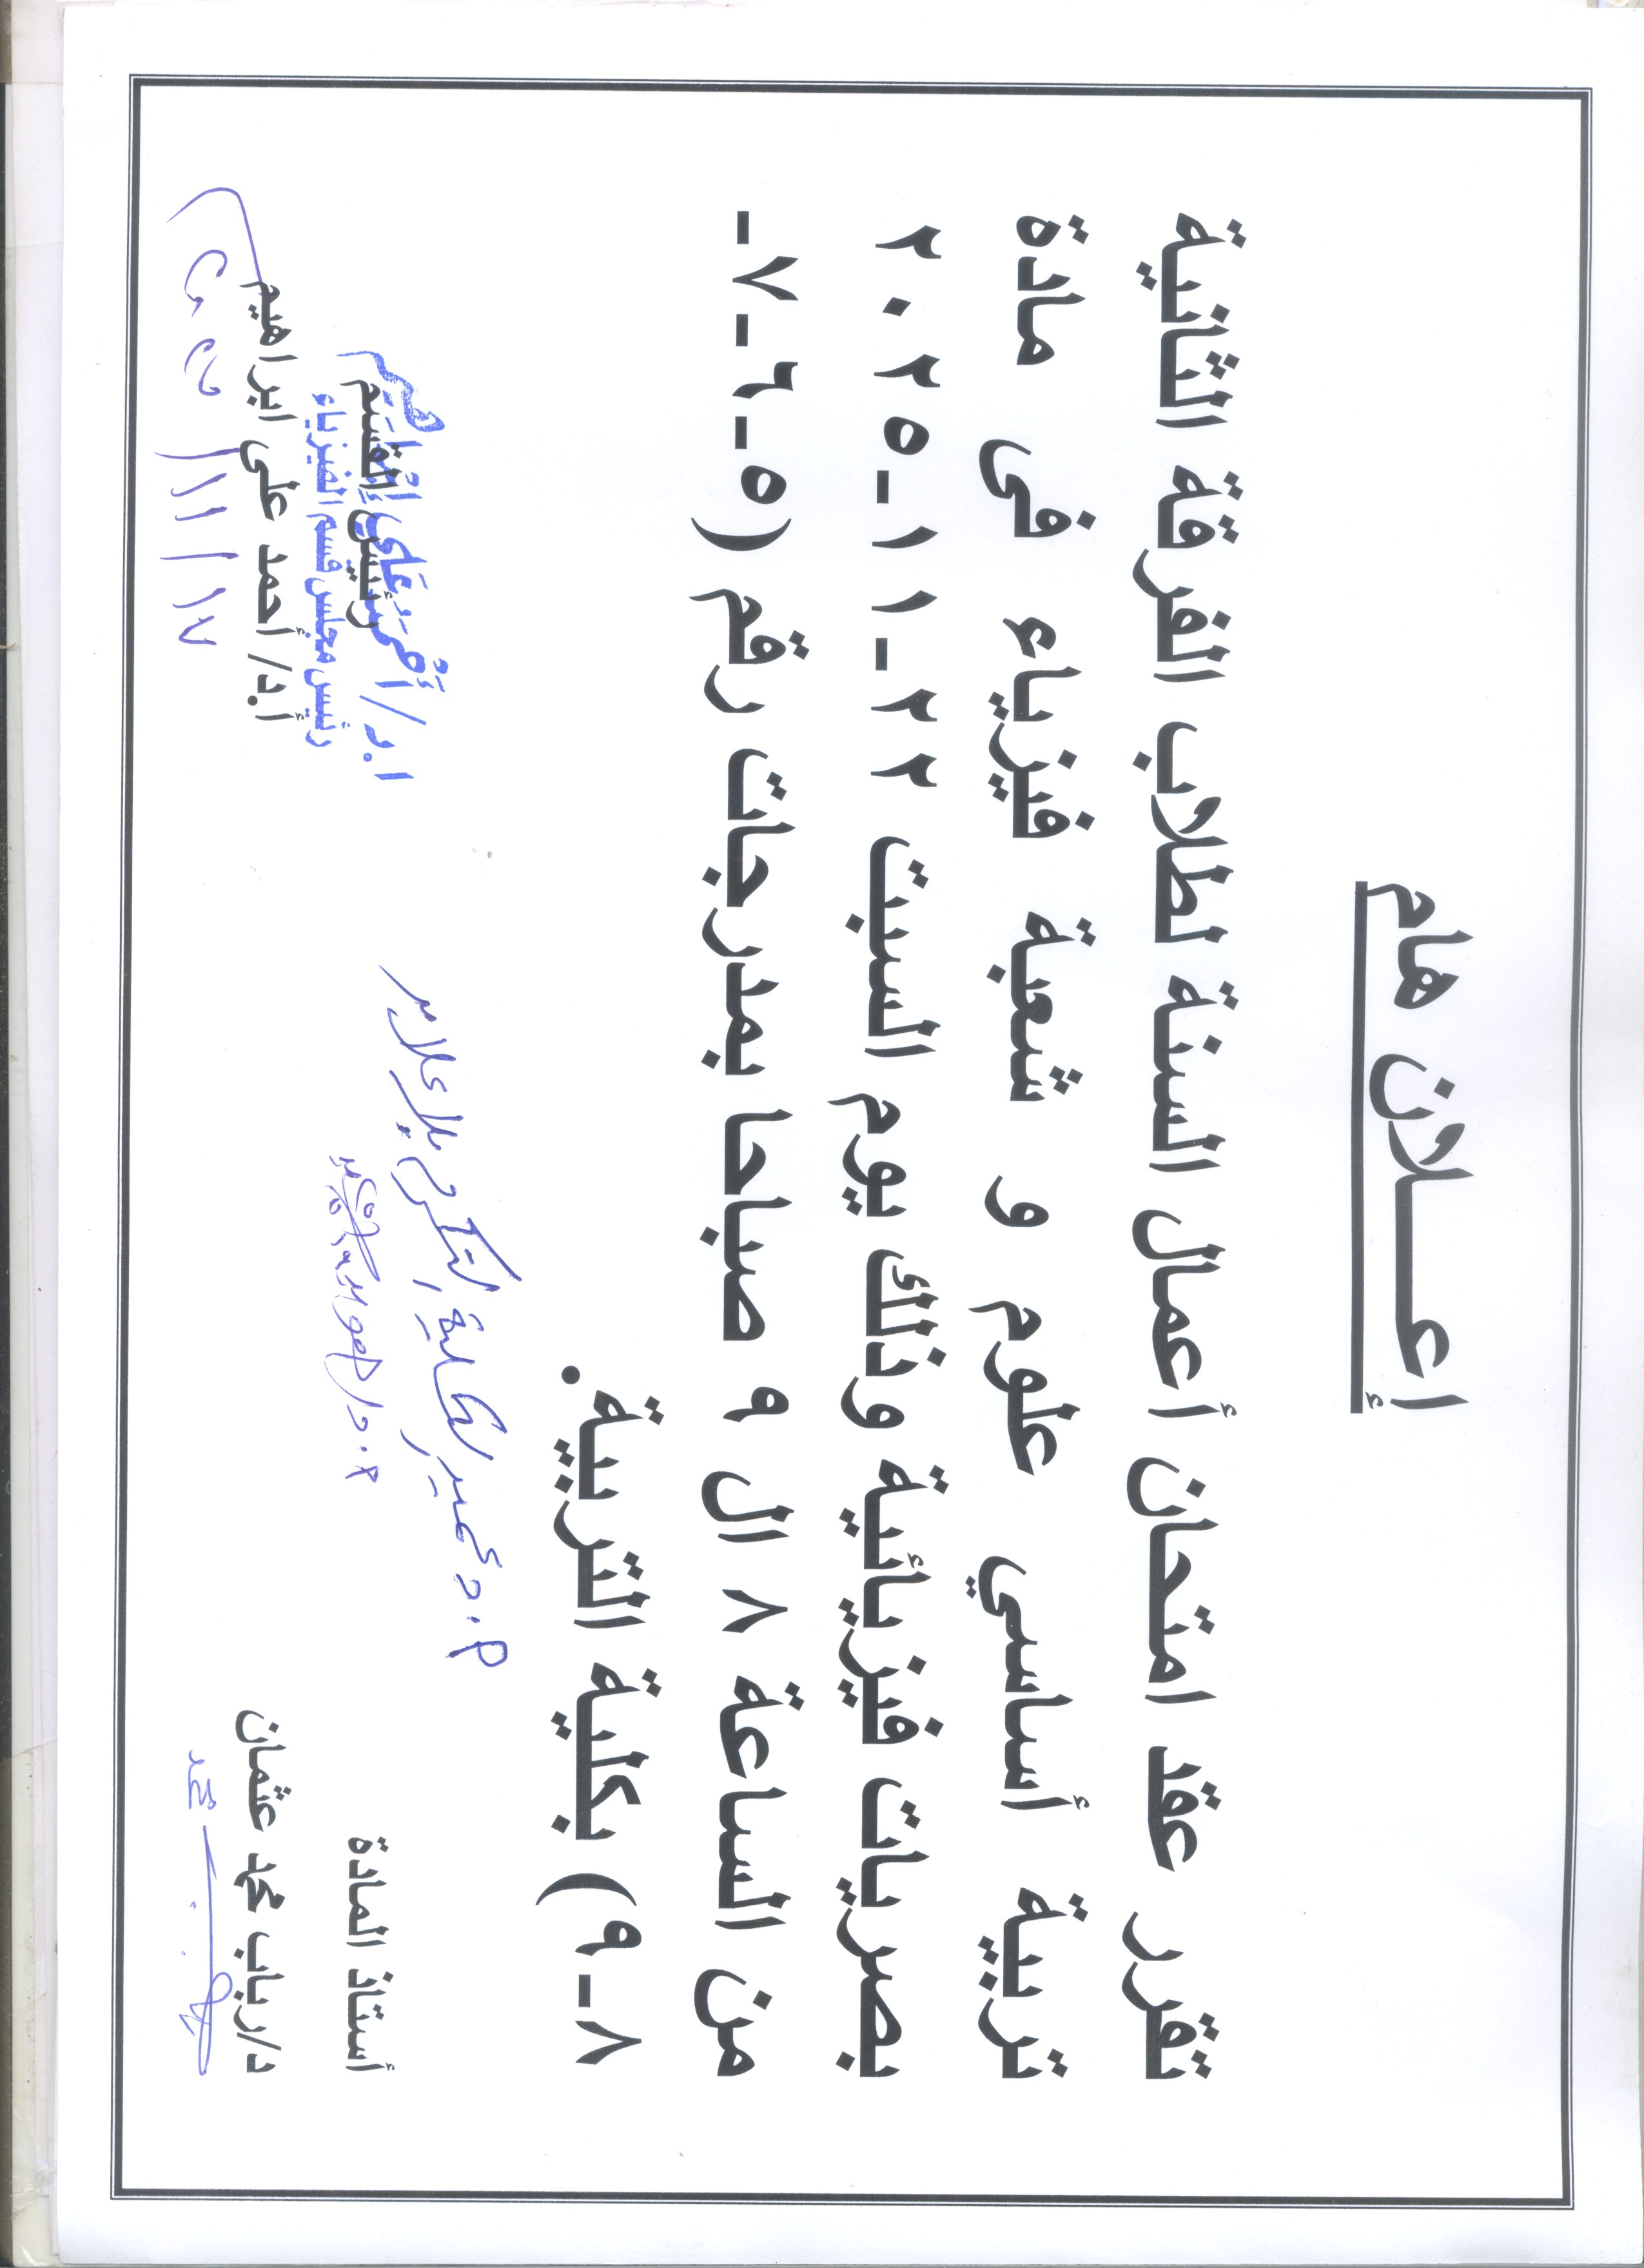 إعـــلان هام
تقرر عقد امتحان أعمال السنة لطلاب الفرقة الثانية
تربية أساسي علوم و شعبة فيزياء فى مادة
بصريات فيزيائية وذلك يوم السبت ٢٢-١١-٢٠٢٥
من الساعة ٨ ال ٩ صباحا بمدرجات رقم (٥-٦-٧-
٨-٩) بكلية التربية.
أ.د عميد الكلية
أستاذ المادة
رئيس القسم
د/رباب محمد عثمان
أ.د/ أحمد على ابراهيم
ا.د/ أحمد على إبراهيم
رئيس مجلس قسم الفيزياء